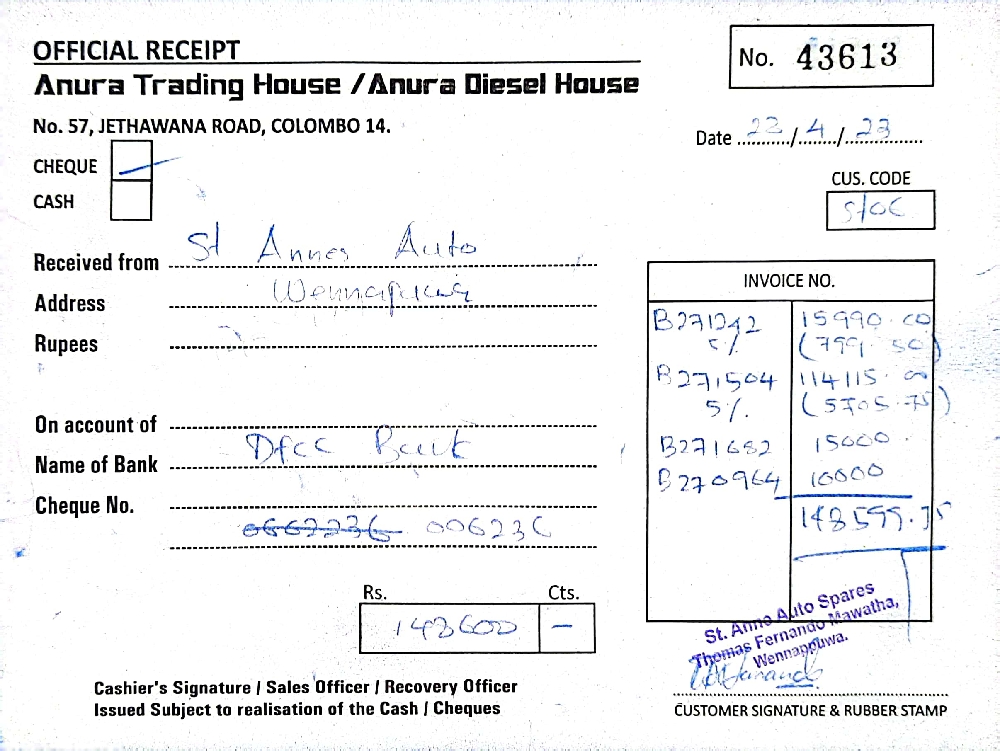 OFFICIAL RECEIPT
No. 43613
Anura Trading House / Anura Diesel House
No. 57, JETHAWANA ROAD, COLOMBO 14.
Date 22/4/23
CHEQUE
CASH
CUS. CODE
Received from St Annes Auto
Address Wennapuwa
Rupees
INVOICE NO.
B271242 15990.00
5% (799.50)
B271504 114115.00
5% (5705.75)
B271682 15000
B270964 10000
148599.75
On account of
Name of Bank Dfcc Bank
Cheque No.
0662236 006236
Rs. Cts.
148600 –
St. Anne Auto Spares
Thomas Fernando Mawatha,
Wennappuwa.
Cashier's Signature / Sales Officer / Recovery Officer
Issued Subject to realisation of the Cash / Cheques
CUSTOMER SIGNATURE & RUBBER STAMP